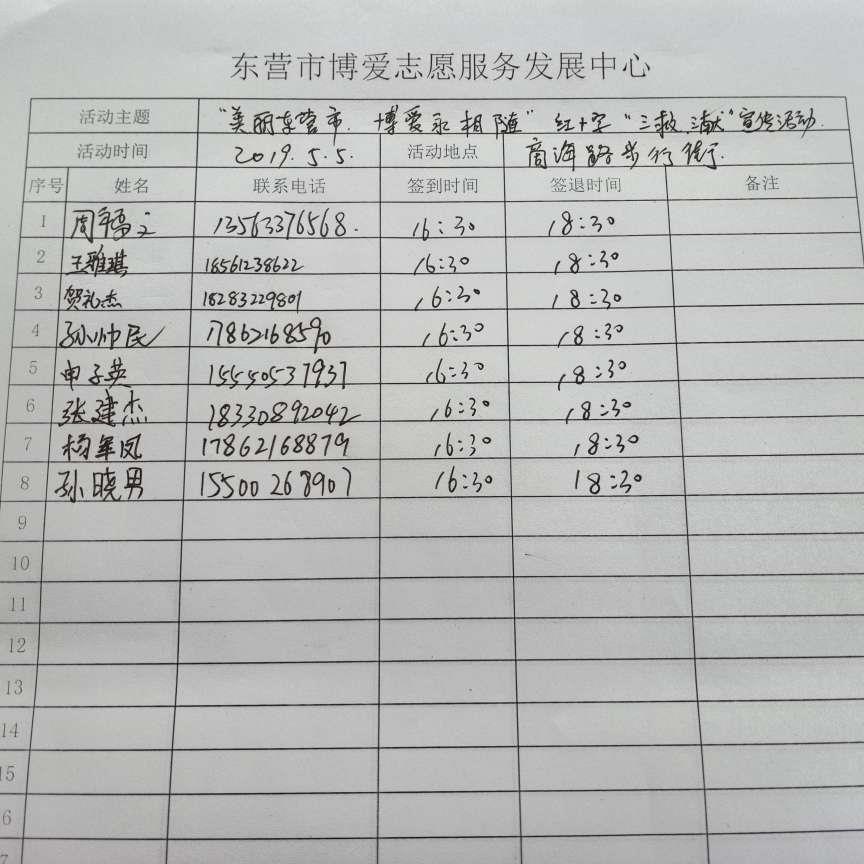 东营市博爱志愿服务发展中心
活动主题 "美丽东营市．博爱永相随" 红十字 "三救三献" 宣传活动．
活动时间 2019.5.5. 活动地点 商海路步行街．
序号 姓名 联系电话 签到时间 签退时间 备注
1 周 13563376568. 16:30 18:30
2 王雅琪 18561238622 16:30 18:30
3 贺礼杰 18283229801 16:30 18:30
4 孙帅民 17862168590 16:30 18:30
5 申子英 15550537937 16:30 18:30
6 张建杰 18330892042 16:30 18:30
7 杨军凤 17862168879 16:30 18:30
8 孙晓男 15500268907 16:30 18:30
9
10
11
12
13
14
15
6
7